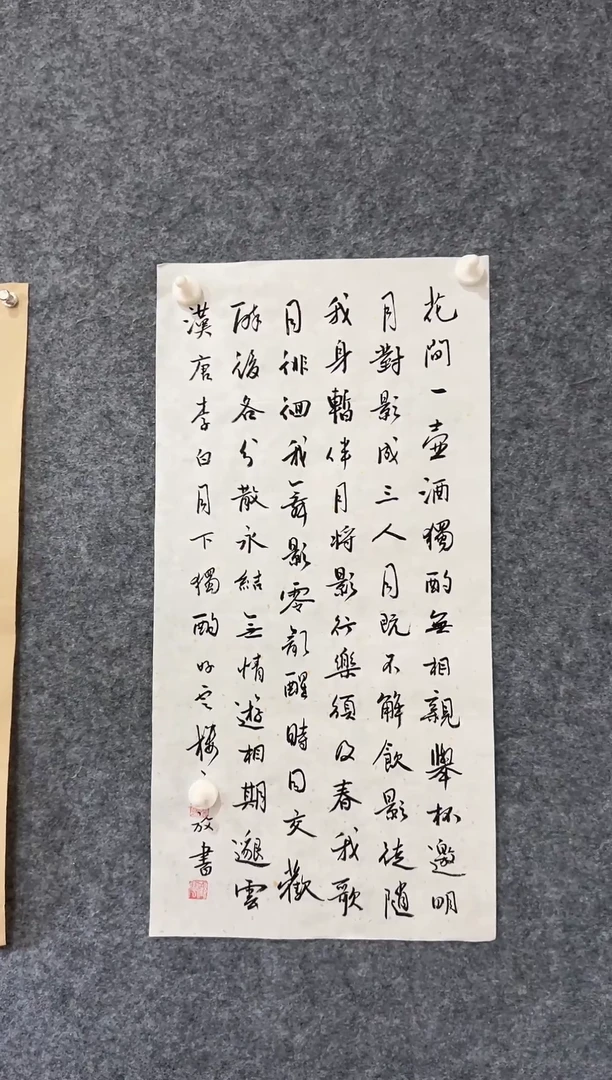 花間一壺酒獨酌無相親舉杯邀明
月對影成三人月既不解飲影徒隨
我身暫伴月將影行樂須及春我歌
月徘徊我舞影零亂醒時同交歡
醉後各分散永結無情遊相期邈雲
漢唐李白月下獨酌 樓 放書